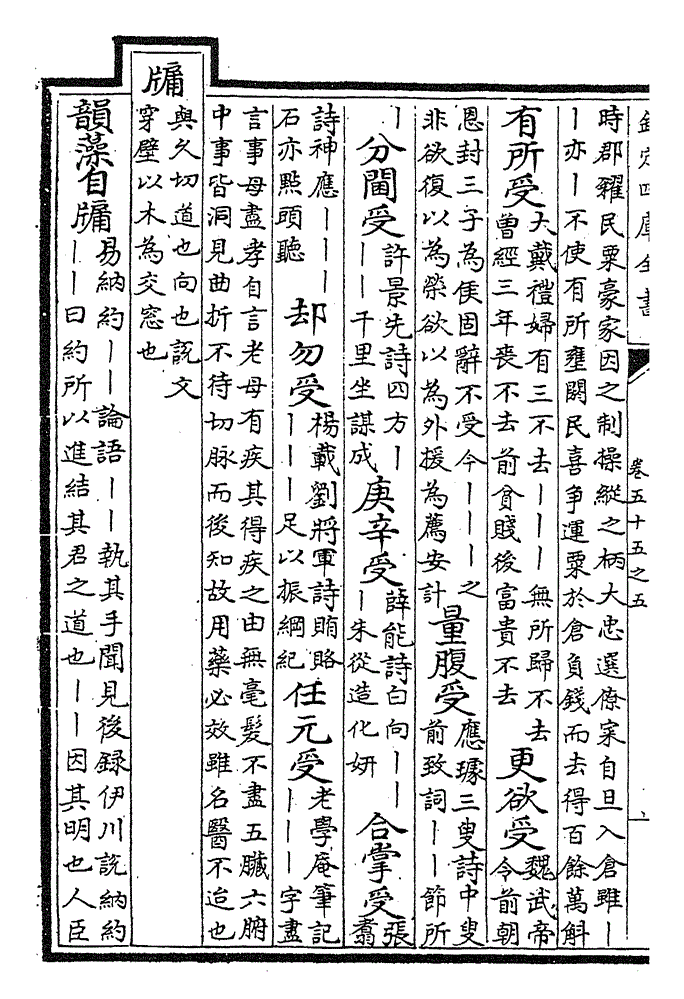 欽定四庫全書
卷五十五之五
時郡糴民粟豪家因之制操縱之柄大忠選僚寀自旦入倉雖丨
丨亦丨不使有所壅閼民喜争運粟於倉負錢而去得百餘萬斛
有所受
大戴禮婦有三不去丨丨丨無所歸不去
曾經三年喪不去前貧賤後富貴不去
更欲受
魏武帝
令前朝
恩封三子為侯固辭不受今丨丨丨之
非欲復以為榮欲以為外援為薦安計
量腹受
應璩三叟詩中叟
前致詞丨丨節所
丨
分閫受
許景先詩四方丨
丨丨千里坐謀成
庚辛受
薛能詩白向丨丨
丨朱從造化妍
合掌受
張
翥
詩神應丨丨丨
石亦點頭聽
却勿受
楊載劉將軍詩賄賂
丨丨丨足以振綱紀
任元受
老學庵筆記
丨丨丨字盡
言事母盡孝自言老母有疾其得疾之由無毫髮不盡五臟六腑
中事皆洞見曲折不待切脉而後知故用藥必效雖名醫不迨也
牖
與久切道也向也説文
穿壁以木為交窓也
韻藻自牖
易納約丨丨論語丨丨執其手聞見後録伊川説納約
丨丨曰約所以進結其君之道也丨丨因其明也人臣